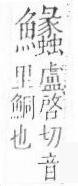 盧啓切音
里鮦也